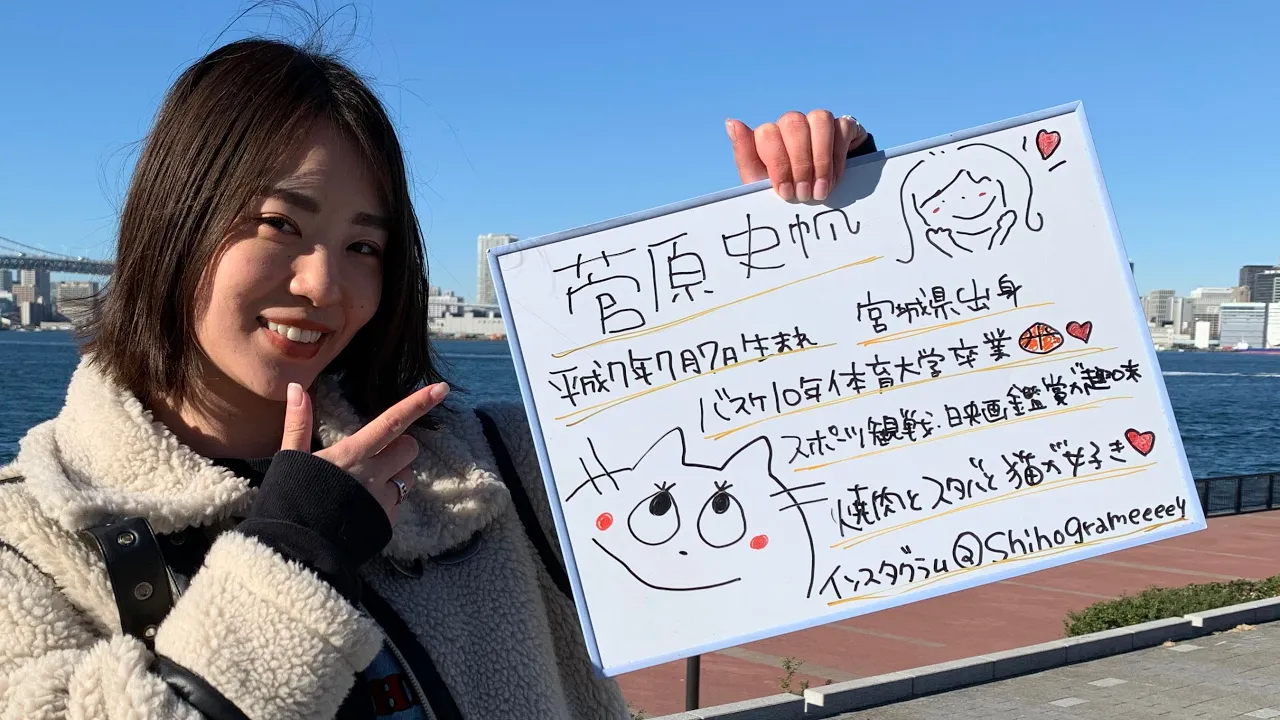 菅原 史帆
宮城県出身
平成7年7月7日生まれ
バスケ10年体育大学卒業
スポーツ観戦、映画鑑賞が趣味
焼肉とスタバと猫が好き
インスタグラム@Shihogrameeeey